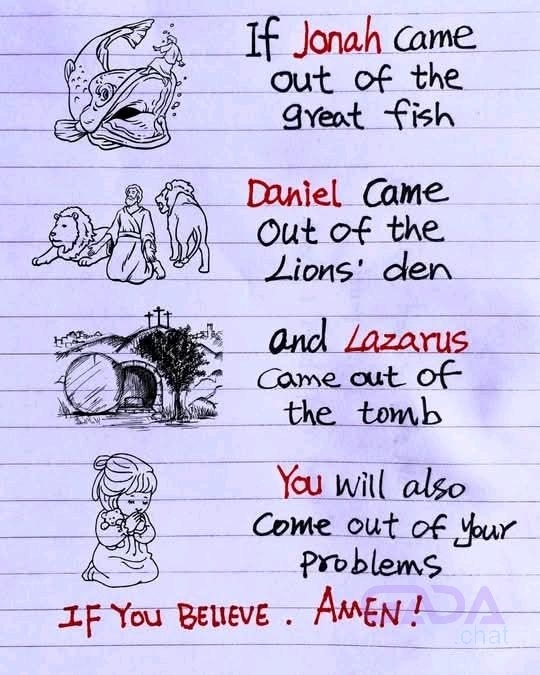 If Jonah came
out of the
great fish
Daniel Came
Out of the
Lions' den
and Lazarus
Came out of
the tomb
You will also
Come out of your
Problems
IF YOU BELIEVE . AMEN!
.chat